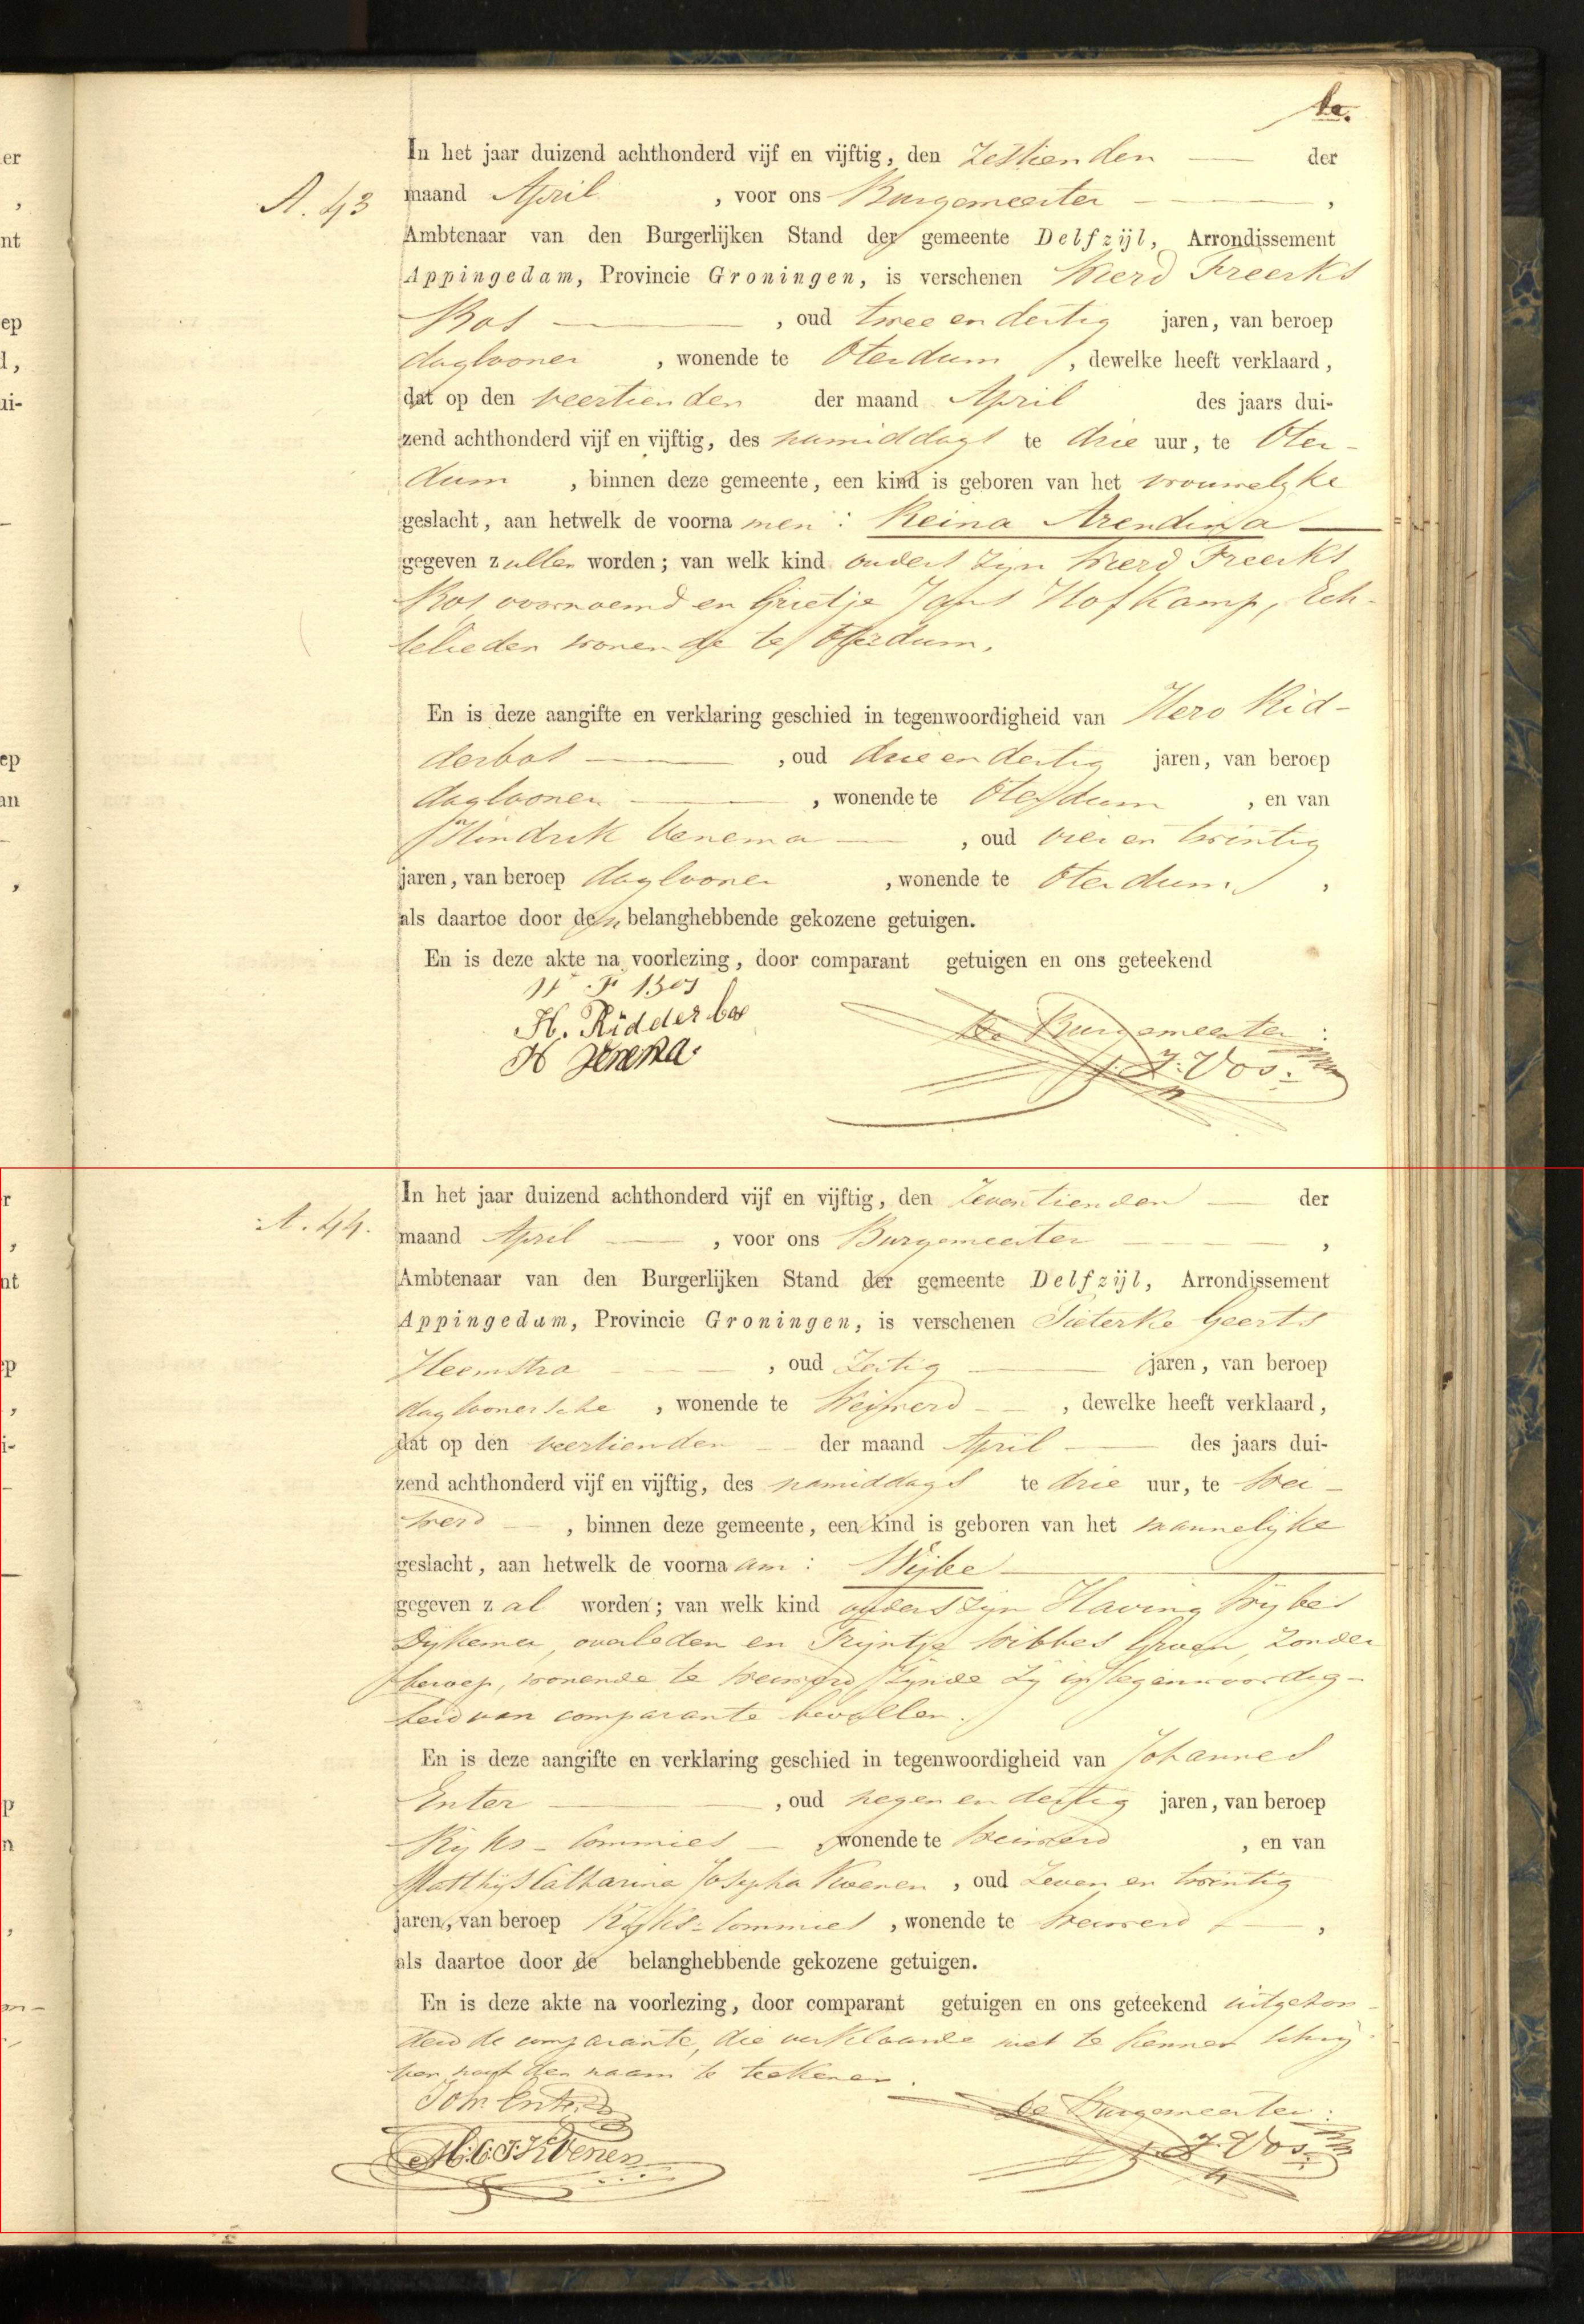 In het jaar duizend achthonderd vijf en vijftig, den Zestienden der
A. 43 maand April , voor ons Burgemeester ,
Ambtenaar van den Burgerlijken Stand der gemeente Delfzijl, Arrondissement
Appingedam, Provincie Groningen, is verschenen Wierd Freerks
Bos , oud twee en dertig jaren, van beroep
daglooner , wonende te Oterdum , dewelke heeft verklaard,
dat op den veertienden der maand April des jaars dui-
zend achthonderd vijf en vijftig, des namiddags te drie uur, te Oter-
dum , binnen deze gemeente, een kind is geboren van het vrouwelyke
geslacht, aan hetwelk de voornamen : Reina Arendina
gegeven zullen worden; van welk kind ouders zyn Wierd Freerks
Bos voornoemd en Grietje Jans Hofkamp, Ech-
telieden wonende te Oterdum.
En is deze aangifte en verklaring geschied in tegenwoordigheid van Hero Rid-
derbos , oud drie en dertig jaren, van beroep
daglooner , wonende te Oterdum , en van
Hindrik Venema , oud vier en twintig
jaren, van beroep daglooner , wonende te Oterdum ,
als daartoe door den belanghebbende gekozene getuigen.
En is deze akte na voorlezing, door comparant getuigen en ons geteekend
W F Bos
H. Ridderbos De Burgemeester:
H Venema J. Vos.
In het jaar duizend achthonderd vijf en vijftig, den Zeventienden der
A. 44. maand April , voor ons Burgemeester ,
Ambtenaar van den Burgerlijken Stand der gemeente Delfzijl, Arrondissement
Appingedam, Provincie Groningen, is verschenen Pieterke Geerts
Heemstra , oud Zestig jaren, van beroep
dagloonersche , wonende te Weiwerd , dewelke heeft verklaard,
dat op den veertienden der maand April des jaars dui-
zend achthonderd vijf en vijftig, des namiddags te drie uur, te Wei-
werd , binnen deze gemeente, een kind is geboren van het mannelijke
geslacht, aan hetwelk de voornaam : Wijbe
gegeven zal worden; van welk kind ouders zyn Having Wybes
Dykema, overleden en Tryntje Wibbes Groen, zonder
beroep, wonende te Weiwerd, zynde zy in tegenwoordig-
heid van comparante bevallen.
En is deze aangifte en verklaring geschied in tegenwoordigheid van Johannes
Enter , oud negen en dertig jaren, van beroep
Ryks-Commies , wonende te Weiwerd , en van
Matthijs Catharina Josepha Kwenen , oud Zeven en twintig
jaren, van beroep Ryks-Commies , wonende te Weiwerd ,
als daartoe door de belanghebbende gekozene getuigen.
En is deze akte na voorlezing, door comparant getuigen en ons geteekend uitgezon-
derd de comparante, die verklaarde niet te kennen schry-
ven noch den naam te teekenen.
Joh. Enter De Burgemeester:
M.C.J. Kwenen J. Vos.